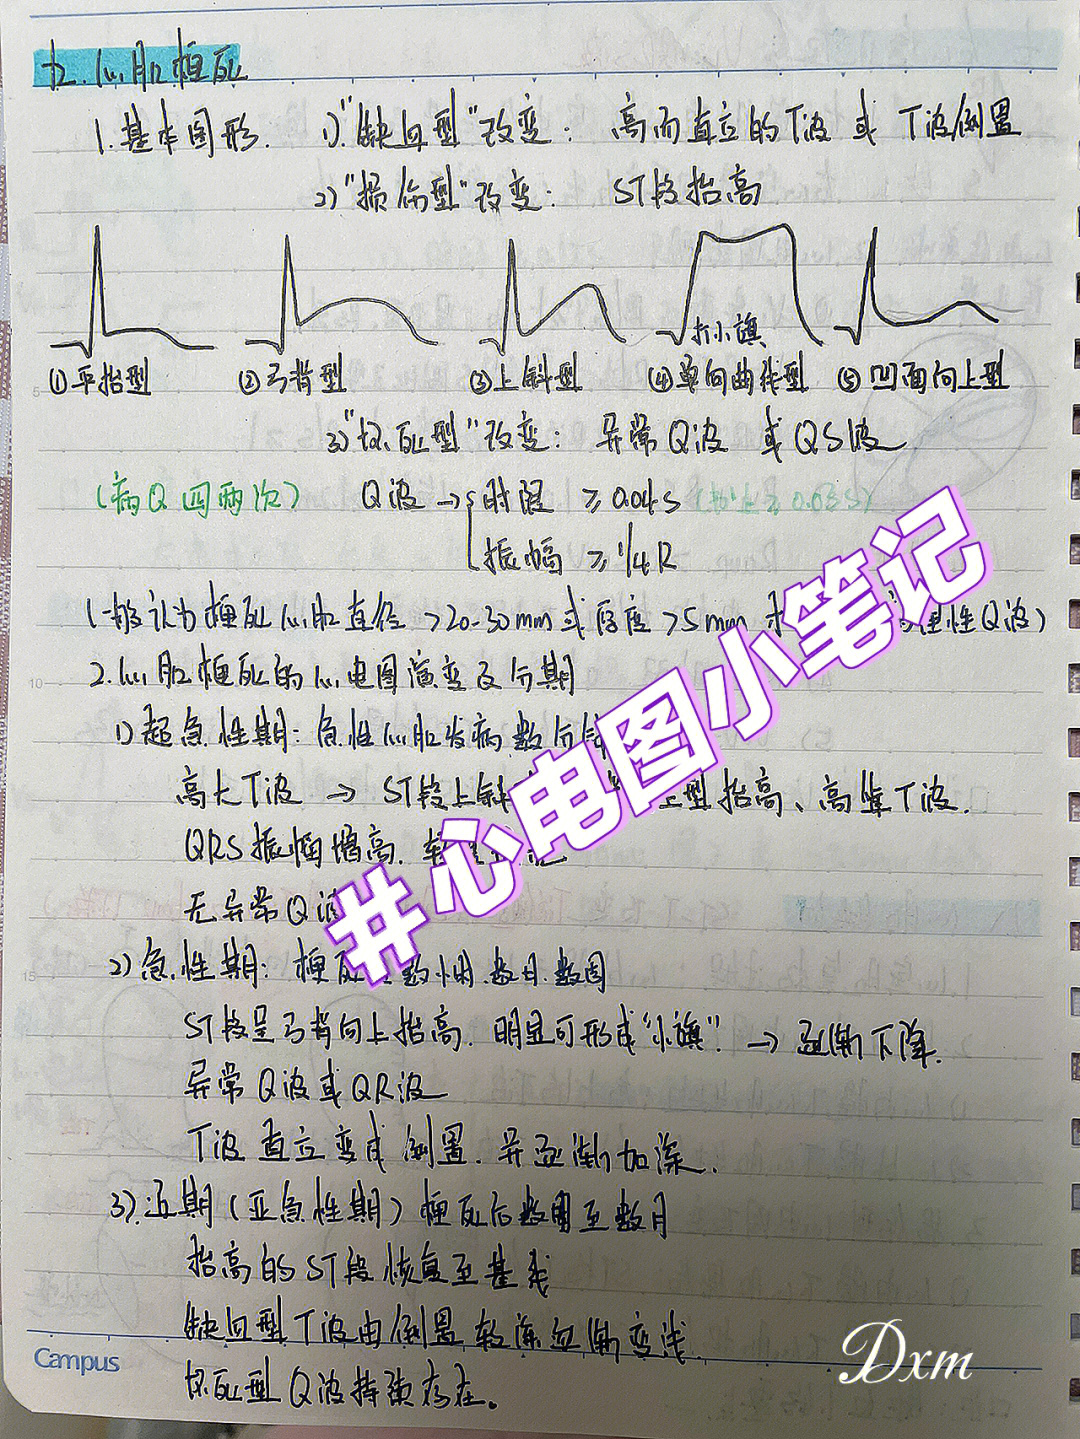 五.心肌梗死
1.基本图形. 1)"缺血型"改变: 高而直立的T波 或 T波倒置
2)"损伤型"改变: ST段抬高
扛小旗
①平抬型 ②弓背型 ③上斜型 ④单向曲线型 ⑤凹面向上型
3)"坏死型"改变: 异常Q波 或QS波
(病Q四两次) Q波→时限 ≥0.04s ≥0.03s)
振幅 ≥1/4R
(一般认为梗死心肌直径>20-30mm或厚度>5mm 理性Q波)
2.心肌梗死的心电图演变及分期
1)超急性期: 急性心肌发病数分
高大T波 → ST段上斜 上型抬高、高耸T波.
QRS振幅增高.
无异常Q波
2)急性期: 梗死 数小时.数日.数周
ST段呈弓背向上抬高. 明显可形成"小旗". → 逐渐下降.
异常Q波或QR波
T波直立变成倒置.并逐渐加深.
3).近期(亚急性期)梗死后数周至数月
抬高的ST段恢复至基线
缺血型T波由倒置较深逐渐变浅.
坏死型Q波持续存在。
#心电图小笔记
Campus
Dxm
5
10
15